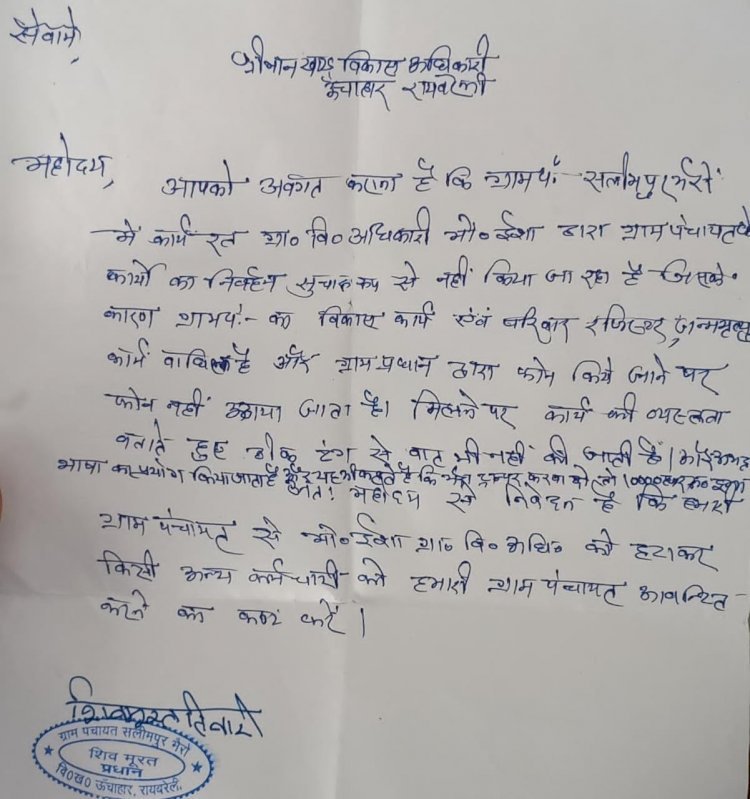 सेवामे,
श्रीमान खण्ड विकास अधिकारी
ऊंचाहार रायबरेली
महोदय,
आपको अवगत कराना है कि ग्रामपं॰ सलीमपुर भैरों
में कार्य रत ग्रा॰ वि॰ अधिकारी मो॰ ईशा द्वारा ग्राम पंचायत के
कार्यो का निर्वहन सुचारू रूप से नहीं किया जा रहा है जिसके
कारण ग्रामपं॰ का विकास कार्य एवं परिवार रजिस्टर, जन्ममृत्यु
कार्य बाधित है और ग्राम प्रधान द्वारा फोन किये जाने पर
फोन नहीं उठाया जाता है। मिलने पर कार्य की व्यस्तता
बताते हुए ठीक ढंग से बात भी नहीं की जाती है। और अभद्र
भाषा का प्रयोग किया जाता है और यह भी कहते है कि मेरा ट्रान्सफर करवा दो तो 10000 हजार रू॰
अतः महोदय से निवेदन है कि हमारी
ग्राम पंचायत से मो॰ ईशा ग्रा॰ वि॰ अधि॰ को हटाकर
किसी अन्य कर्मचारी को हमारी ग्राम पंचायत आवन्टित
करने का कष्ट करें।
शिवमूरत तिवारी
ग्राम पंचायत सलीमपुर भैरो
शिव मूरत
प्रधान
वि०ख० ऊँचाहार, रायबरेली